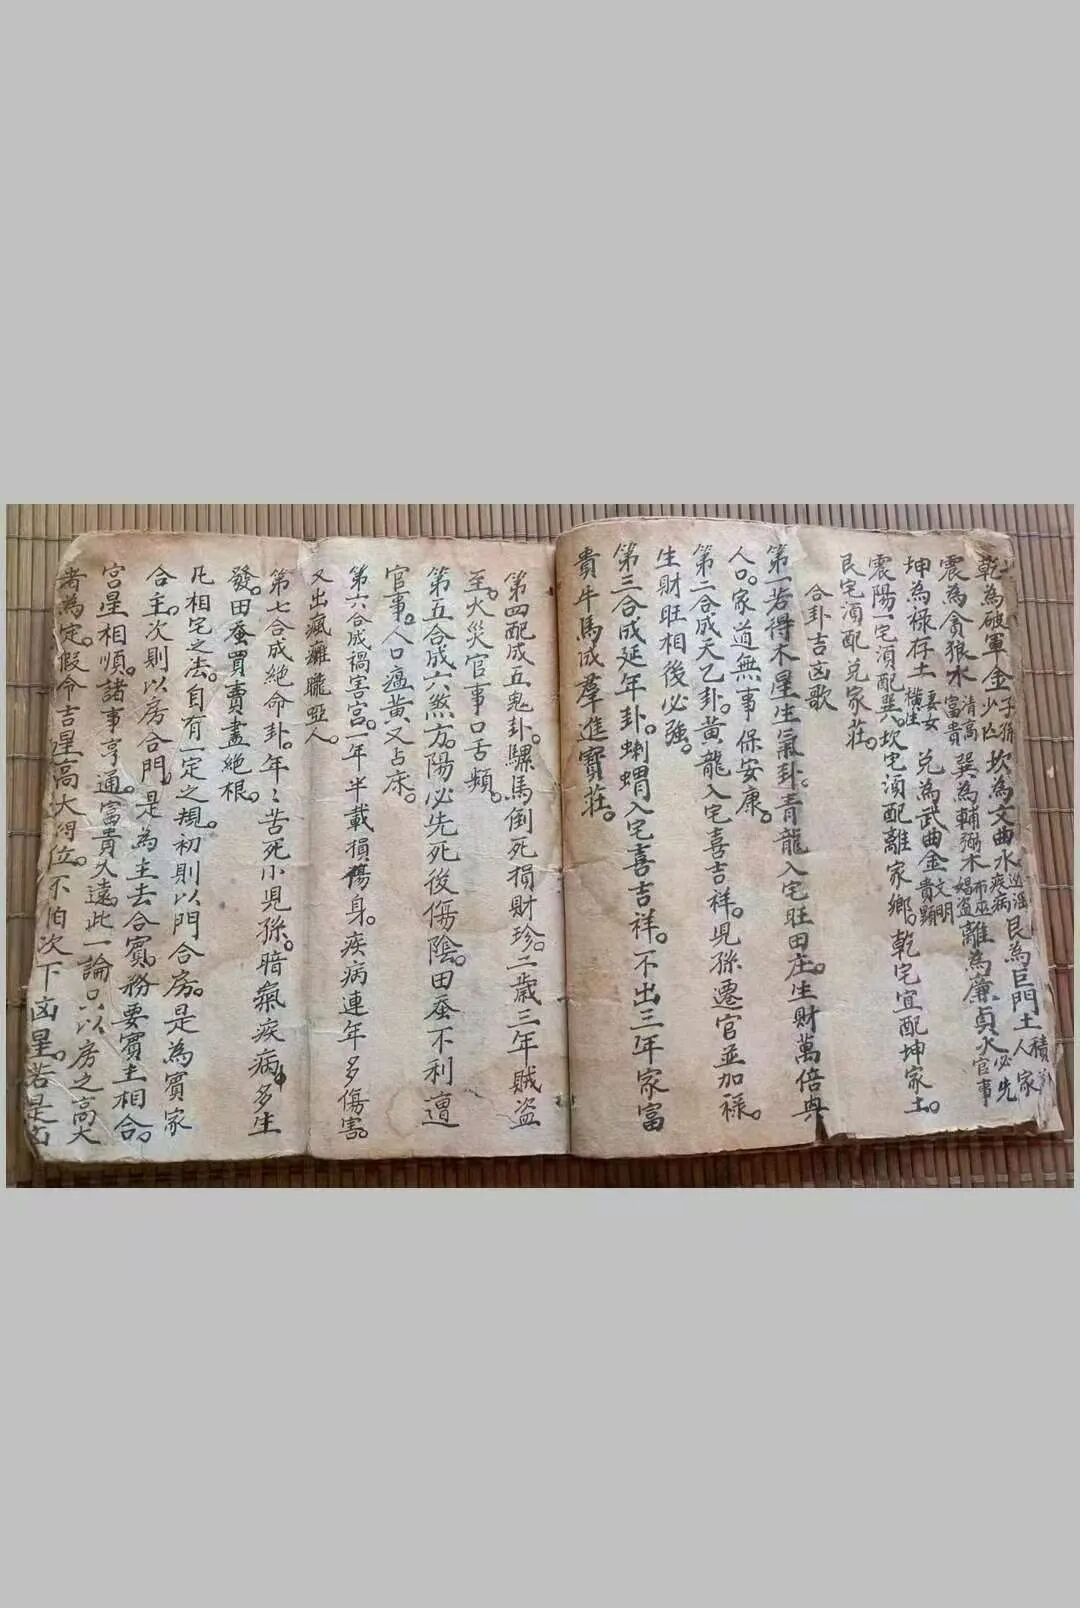 乾為破軍金子孫少凶坎為文曲水遊滛疾病艮為巨門土積家人
震為貪狼木清高富貴巽為輔弼木布巫娼盗離為廉貞火必先官事
坤為禄存土妻女橫生兌為武曲金文明貴顯
震陽一宅湏配巽。坎宅湏配離家鄉。乾宅宜配坤家土。
艮宅湏配兌家莊。
合卦吉凶歌
第一若得木星生氣卦。青龍入宅旺田庄。生財萬倍興
人口。家道無事保安康。
第二合成天乙卦。黃龍入宅喜吉祥。児孫遷官並加禄。
生財旺相後必强。
第三合成延年卦。蝌蝟入宅喜吉祥。不出三年家富
貴牛馬成羣進寶莊。
第四配成五鬼卦。騾馬倒死損財珍。二歲三年賊盗
至。火災官事口舌頻。
第五合成六煞方。陽必先死後傷陰。田蚕不利遭
官事。人口瘟黄又占床。
第六合成禍害宫。一年半載損傷身。疾病連年多傷害。
又出瘋癱聾啞人。
第七合成絶命卦。年〻苦死小児孫。暗氣疾病多生
發。田蚕買賣盡絶根。
凡相宅之法。自有一定之規。初則以門合房。是為賓家
合主。次則以房合門。是為主去合賓。務要賓主相合。
宫星相順。諸事亨通。富貴久遠。此一論只以房之高大
者為定。假令吉星高大得位。不怕次下凶星。若是